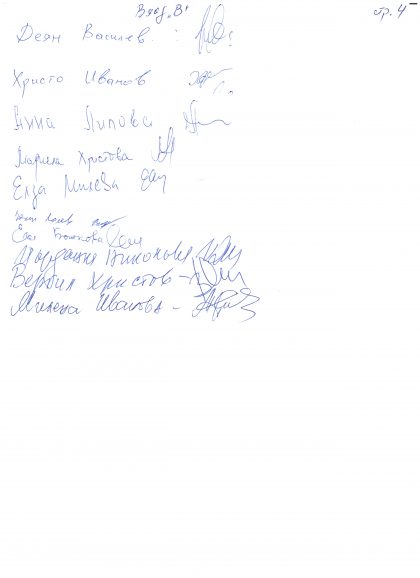 Вход "В"
стр. 4
Деян Василев :
Христо Иванов
Анна Липова
Марила Христова
Елза Милева
Йорданка Николова
Вербил Христов -
Милена Иванова -